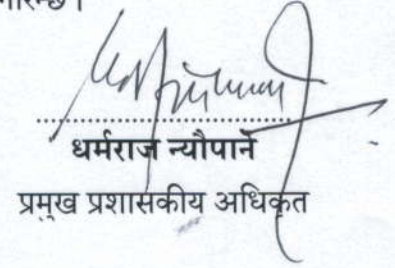 धर्मराज न्यौपाने
प्रमुख प्रशासकीय अधिकृत